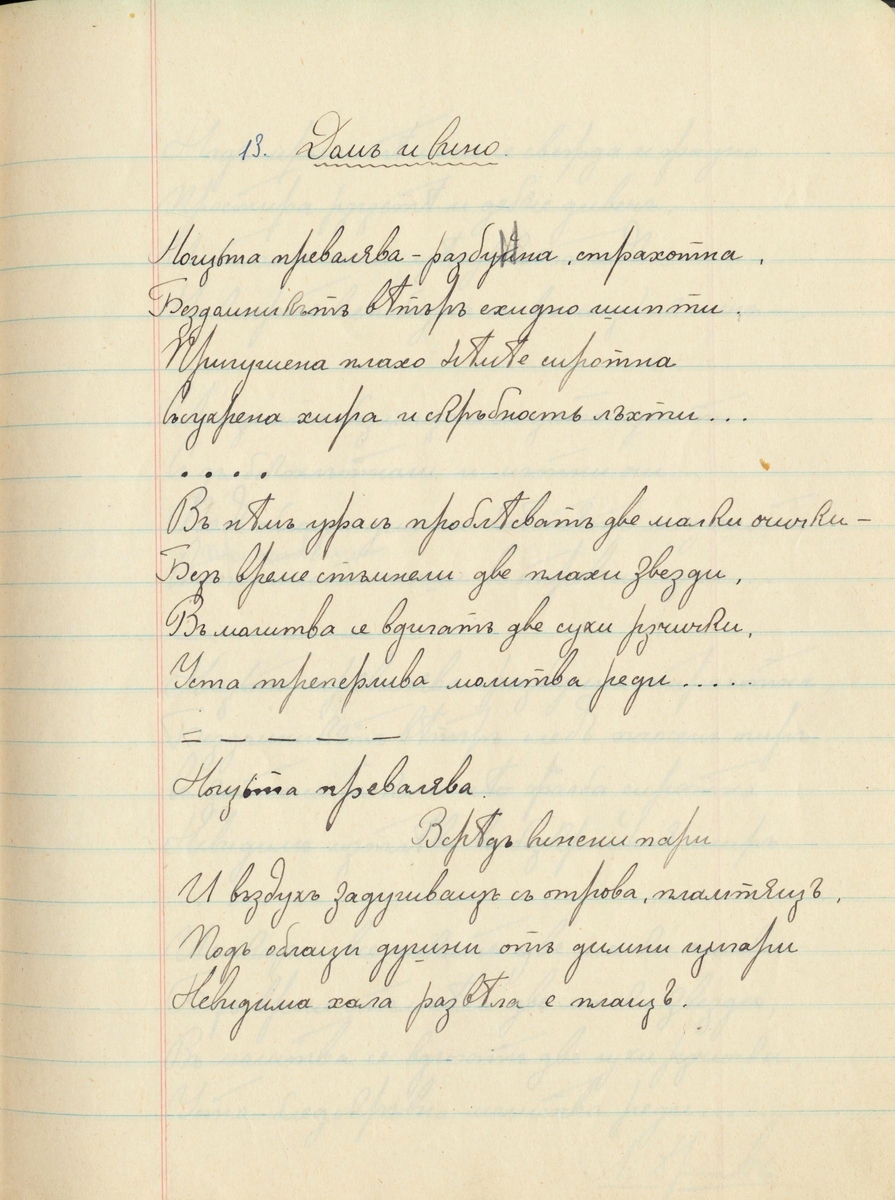 13. Димъ и вино.
Нощьта превалява – разбуйна, страхотна,
Бездомникътъ вѣтъръ ехидно шипти.
Пригушена плахо нѣйде сиротна
Съсухрена хира и скръбность лъхти...
. . . .
Въ нѣмъ ужасъ проблѣсватъ две малки очички –
Безъ време стъмнели две плахи звезди,
Въ молитва се вдигатъ две сухи рѫчички,
Уста треперлива молитва реди.....
= — — — —
Нощьта превалява.
Всрѣдъ винени пари
И въздухъ задушиващъ съ отрова, пламтящъ,
Подъ облаци душни отъ димни цигари
Невидима хала развѣла е плащъ.